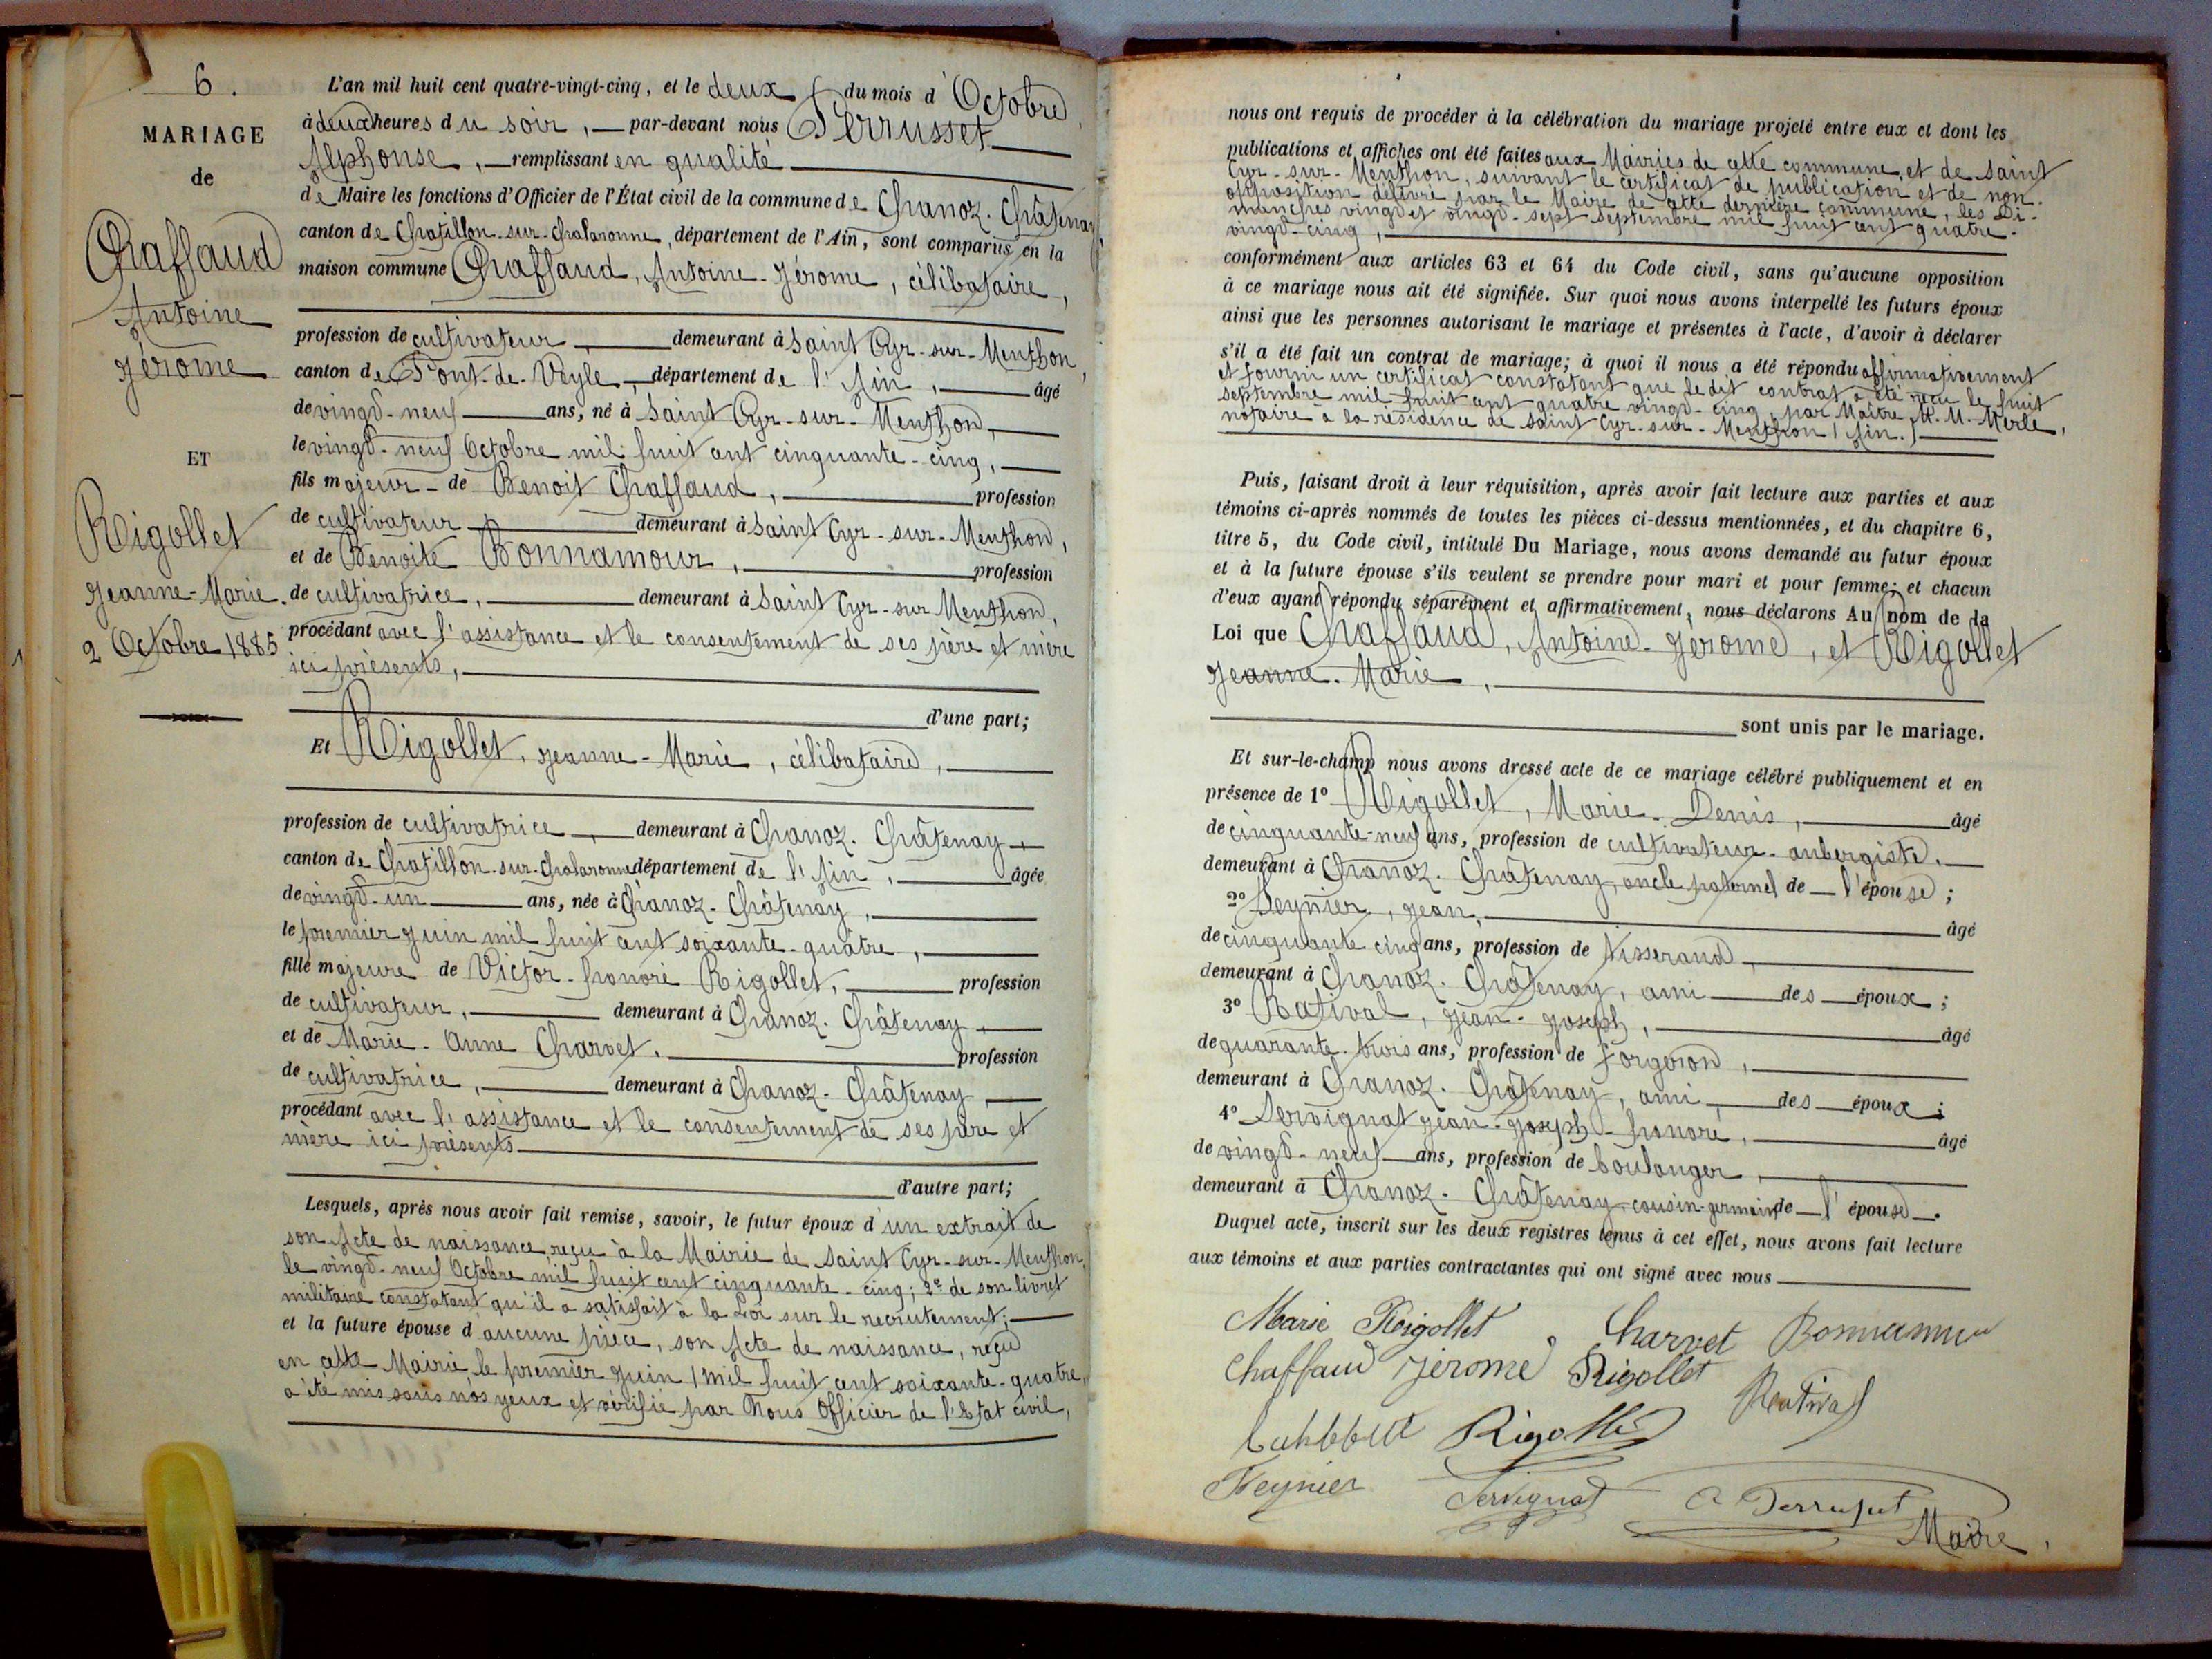 6.
MARIAGE
de
Chaffaud
Antoine
Jérome
ET
Rigollet
Jeanne-Marie.
2 Octobre 1885
L'an mil huit cent quatre-vingt-cinq, et le deux du mois d'Octobre,
à deux heures du soir, par-devant nous Perrusset
Alphonse, remplissant en qualité
de Maire les fonctions d'Officier de l'État civil de la commune de Chanoz-Châtenay,
canton de Chatillon-sur-Chalaronne, département de l'Ain, sont comparus en la
maison commune Chaffaud, Antoine-Jérome, célibataire,
profession de cultivateur, demeurant à Saint Cyr-sur-Menthon,
canton de Pont-de-Veyle, département de l'Ain, âgé
de vingt-neuf ans, né à Saint Cyr-sur-Menthon,
le vingt-neuf Octobre mil huit cent cinquante-cinq,
fils majeur de Benoit Chaffaud, profession
de cultivateur demeurant à Saint Cyr-sur-Menthon,
et de Benoite Bonnamour, profession
de cultivatrice, demeurant à Saint Cyr-sur Menthon,
procédant avec l'assistance et le consentement de ses père et mère
ici présents,
d'une part;
Et Rigollet, Jeanne-Marie, célibataire,
profession de cultivatrice, demeurant à Chanoz-Châtenay
canton de Chatillon-sur-Chalaronne département de l'Ain, âgée
de vingt-un ans, née à Chanoz-Châtenay,
le premier Juin mil huit cent soixante-quatre,
fille majeure de Victor-honoré Rigollet, profession
de cultivateur, demeurant à Chanoz-Châtenay
et de Marie-Anne Charvet, profession
de cultivatrice, demeurant à Chanoz-Châtenay
procédant avec l'assistance et le consentement de ses père et
mère ici présents
d'autre part;
Lesquels, après nous avoir fait remise, savoir, le futur époux d'un extrait de
son Acte de naissance, reçu à la Mairie de Saint Cyr-sur-Menthon,
le vingt-neuf Octobre mil huit cent cinquante-cinq; 2º de son livret
militaire constatant qu'il a satisfait à la Loi sur le recrutement;
et la future épouse d'aucune pièce, son Acte de naissance, reçu
en cette Mairie le premier Juin mil huit cent soixante-quatre,
a été mis sous nos yeux et vérifié par Nous Officier de l'Etat civil,
nous ont requis de procéder à la célébration du mariage projeté entre eux et dont les
publications et affiches ont été faites aux Mairies de cette commune, et de Saint
Cyr-sur-Menthon, suivant le certificat de publication et de non-
opposition délivré par le Maire de cette dernière commune, les Di-
manches vingt et vingt-sept septembre mil huit cent quatre-
vingt-cinq,
conformément aux articles 63 et 64 du Code civil, sans qu'aucune opposition
à ce mariage nous ait été signifiée. Sur quoi nous avons interpellé les futurs époux
ainsi que les personnes autorisant le mariage et présentes à l'acte, d'avoir à déclarer
s'il a été fait un contrat de mariage; à quoi il nous a été répondu affirmativement
et fourni un certificat constatant que le dit contrat a été reçu le huit
septembre mil huit cent quatre vingt-cinq, par Maître M. M. Merle,
notaire à la résidence de Saint Cyr-sur-Menthon (Ain.)
Puis, faisant droit à leur réquisition, après avoir fait lecture aux parties et aux
témoins ci-après nommés de toutes les pièces ci-dessus mentionnées, et du chapitre 6,
titre 5, du Code civil, intitulé Du Mariage, nous avons demandé au futur époux
et à la future épouse s'ils veulent se prendre pour mari et pour femme; et chacun
d'eux ayant répondu séparément et affirmativement, nous déclarons Au nom de la
Loi que Chaffaud, Antoine-Jérome, et Rigollet
Jeanne-Marie,
sont unis par le mariage.
Et sur-le-champ nous avons dressé acte de ce mariage célébré publiquement et en
présence de 1º Rigollet, Marie-Denis, âgé
de cinquante-neuf ans, profession de cultivateur-aubergiste,
demeurant à Chanoz-Châtenay, oncle paternel de l'épouse;
2º Jean, âgé
de cinquante cinq ans, profession de tisserand,
demeurant à Chanoz-Châtenay, ami des époux;
3º Rativat, Jean-Joseph, âgé
de quarante-trois ans, profession de forgeron,
demeurant à Chanoz-Châtenay, ami des époux;
4º Servignat Jean-Joseph-honoré, âgé
de vingt-neuf ans, profession de boulanger,
demeurant à Chanoz-Châtenay cousin-germain de l'épouse.
Duquel acte, inscrit sur les deux registres tenus à cet effet, nous avons fait lecture
aux témoins et aux parties contractantes qui ont signé avec nous
Marie Rigollet Charvet
Chaffaud Jérome Rigollet
Rigollet
Servignat
Maire.